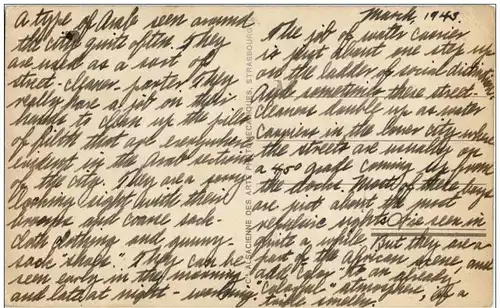 A type of Arab seen around
the city quite often. They
are used as a sort of
street-cleaner-porter. They
really have a job on their
hands to clean up the piles
of filth that are everywhere
evident in the Arab section
of the city. They are a
gloomy sight with their
and coarse sack-
cloth clothing and gunny-
sack "shoes". They can be
seen early in the morning
and late at night - working.
ALSACIENNE DES ARTS PHOTOMECANIQUES, STRASBOURG
March, 1943.
The job of water carrier
is just about one step up
on the ladder of social distinction
and sometimes these street-
cleaners double up as water
carriers in the lower city where
the streets are usually on
a 40° grade coming up from
the docks. Most of these guys
are just about the most
repulsive sights I've seen in
quite a while. But they are a
part of the African scene, and
add color to an already
"colorful" atmosphere,